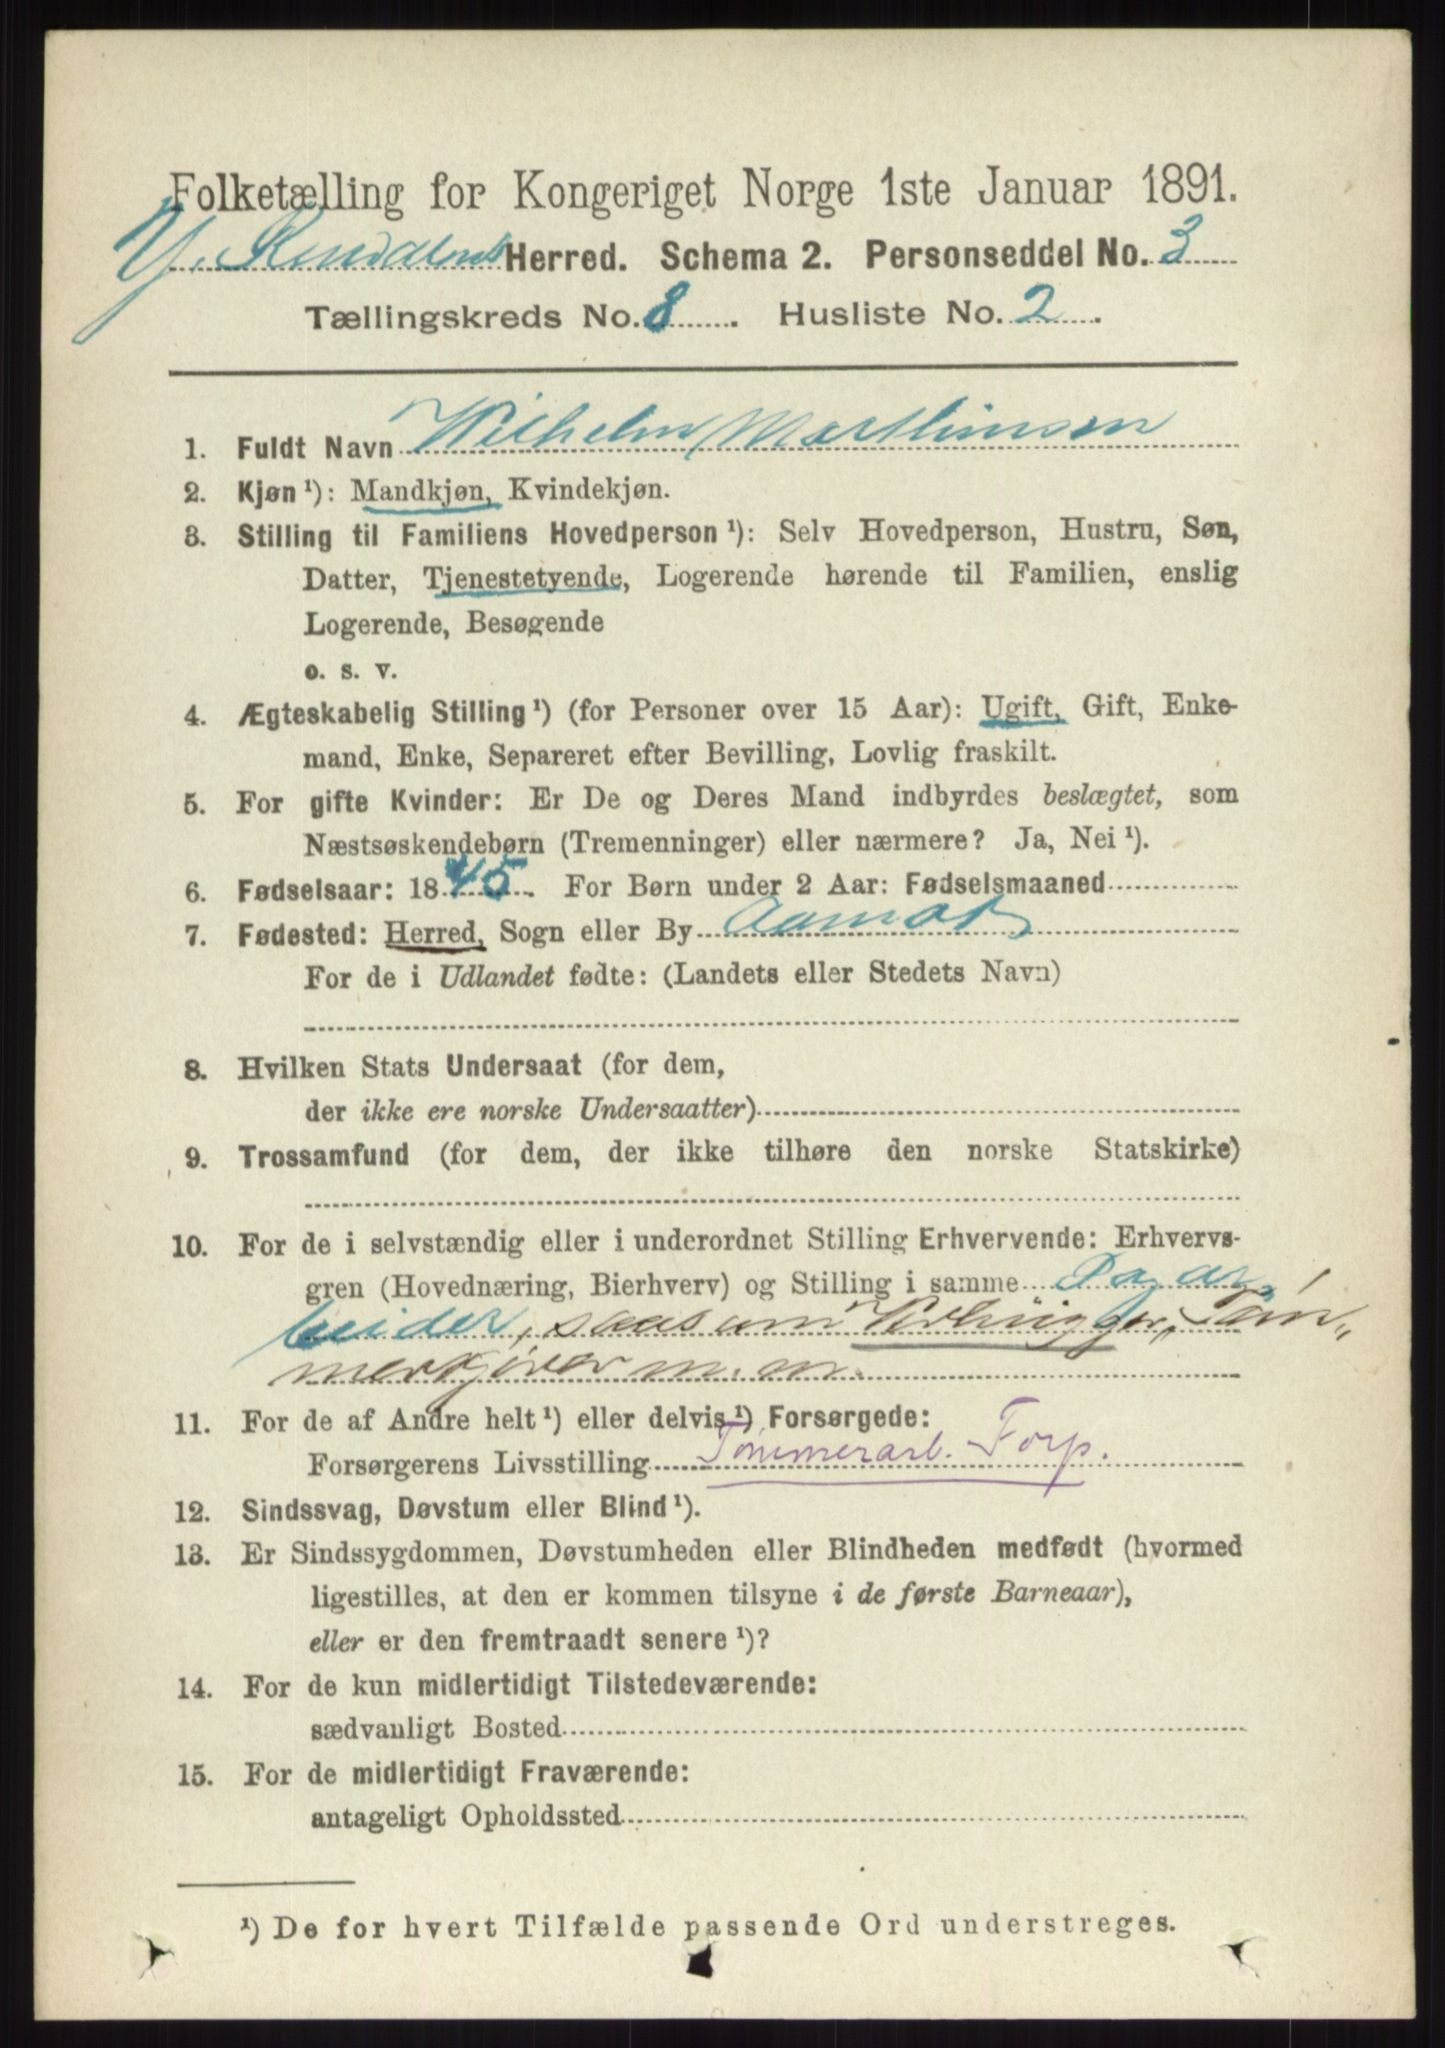 Folketælling for Kongeriget Norge 1ste Januar 1891.
Y. Rendalens Herred. Schema 2. Personseddel No. 3
Tællingskreds No. 8. Husliste No. 2.
1. Fuldt Navn Wilhelm Marthinsen
2. Kjøn ¹): Mandkjøn, Kvindekjøn.
3. Stilling til Familiens Hovedperson ¹): Selv Hovedperson, Hustru, Søn,
Datter, Tjenestetyende, Logerende hørende til Familien, enslig
Logerende, Besøgende
o. s. v.
4. Ægteskabelig Stilling ¹) (for Personer over 15 Aar): Ugift, Gift, Enke-
mand, Enke, Separeret efter Bevilling, Lovlig fraskilt.
5. For gifte Kvinder: Er De og Deres Mand indbyrdes beslægtet, som
Næstsøskendebørn (Tremenninger) eller nærmere? Ja, Nei ¹).
6. Fødselsaar: 1845. For Børn under 2 Aar: Fødselsmaaned
7. Fødested: Herred, Sogn eller By Aamot
For de i Udlandet fødte: (Landets eller Stedets Navn)
8. Hvilken Stats Undersaat (for dem,
der ikke ere norske Undersaatter)
9. Trossamfund (for dem, der ikke tilhøre den norske Statskirke)
10. For de i selvstændig eller i underordnet Stilling Erhvervende: Erhvervs-
gren (Hovednæring, Bierhverv) og Stilling i samme Dagar
beider, saasom Vedhugger, Tøm„
merkjører m. m.
11. For de af Andre helt ¹) eller delvis ¹) Forsørgede:
Forsørgerens Livsstilling Tømmerarb. Forp.
12. Sindssvag, Døvstum eller Blind ¹).
13. Er Sindssygdommen, Døvstumheden eller Blindheden medfødt (hvormed
ligestilles, at den er kommen tilsyne i de første Barneaar),
eller er den fremtraadt senere ¹)?
14. For de kun midlertidigt Tilstedeværende:
sædvanligt Bosted
15. For de midlertidigt Fraværende:
antageligt Opholdssted
¹) De for hvert Tilfælde passende Ord understreges.